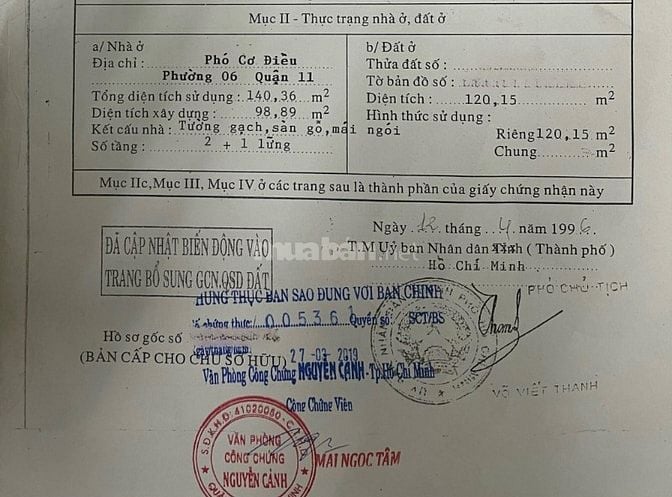 Mục II - Thực trạng nhà ở, đất ở
a/ Nhà ở
Địa chỉ : Phó Cơ Điều
Phường 06 Quận 11
Tổng diện tích sử dụng : 140,36 m2
Diện tích xây dựng : 98,89 m2
Kết cấu nhà : Tường gạch, sàn gỗ, mái ngói
Số tầng : 2 + 1 lửng
b/ Đất ở
Thửa đất số :
Tờ bản đồ số :
Diện tích : 120,15 m2
Hình thức sử dụng :
Riêng 120,15 m2
Chung m2
Mục IIc, Mục III, Mục IV ở các trang sau là thành phần của giấy chứng nhận này
Ngày 12 tháng 4 năm 1996
T.M Uỷ ban Nhân dân Tỉnh ( Thành phố )
Hồ Chí Minh
PHÓ CHỦ TỊCH
ĐÃ CẬP NHẬT BIẾN ĐỘNG VÀO
TRANG BỔ SUNG GCN.QSD ĐẤT
muaban.net
CHỨNG THỰC BẢN SAO ĐÚNG VỚI BẢN CHÍNH
Số chứng thực: 005361 Quyển số: SCT/BS
Hồ sơ gốc số
(BẢN CẤP CHO CHỦ SỞ HỮU)
27-03-2019
Văn Phòng Công Chứng NGUYỄN CẢNH - Tp.Hồ Chí Minh
Công Chứng Viên
VÕ VIẾT THANH
S.Đ.K.H.Đ: 41020080
VĂN PHÒNG
CÔNG CHỨNG
NGUYỄN CẢNH
MAI NGỌC TÂM